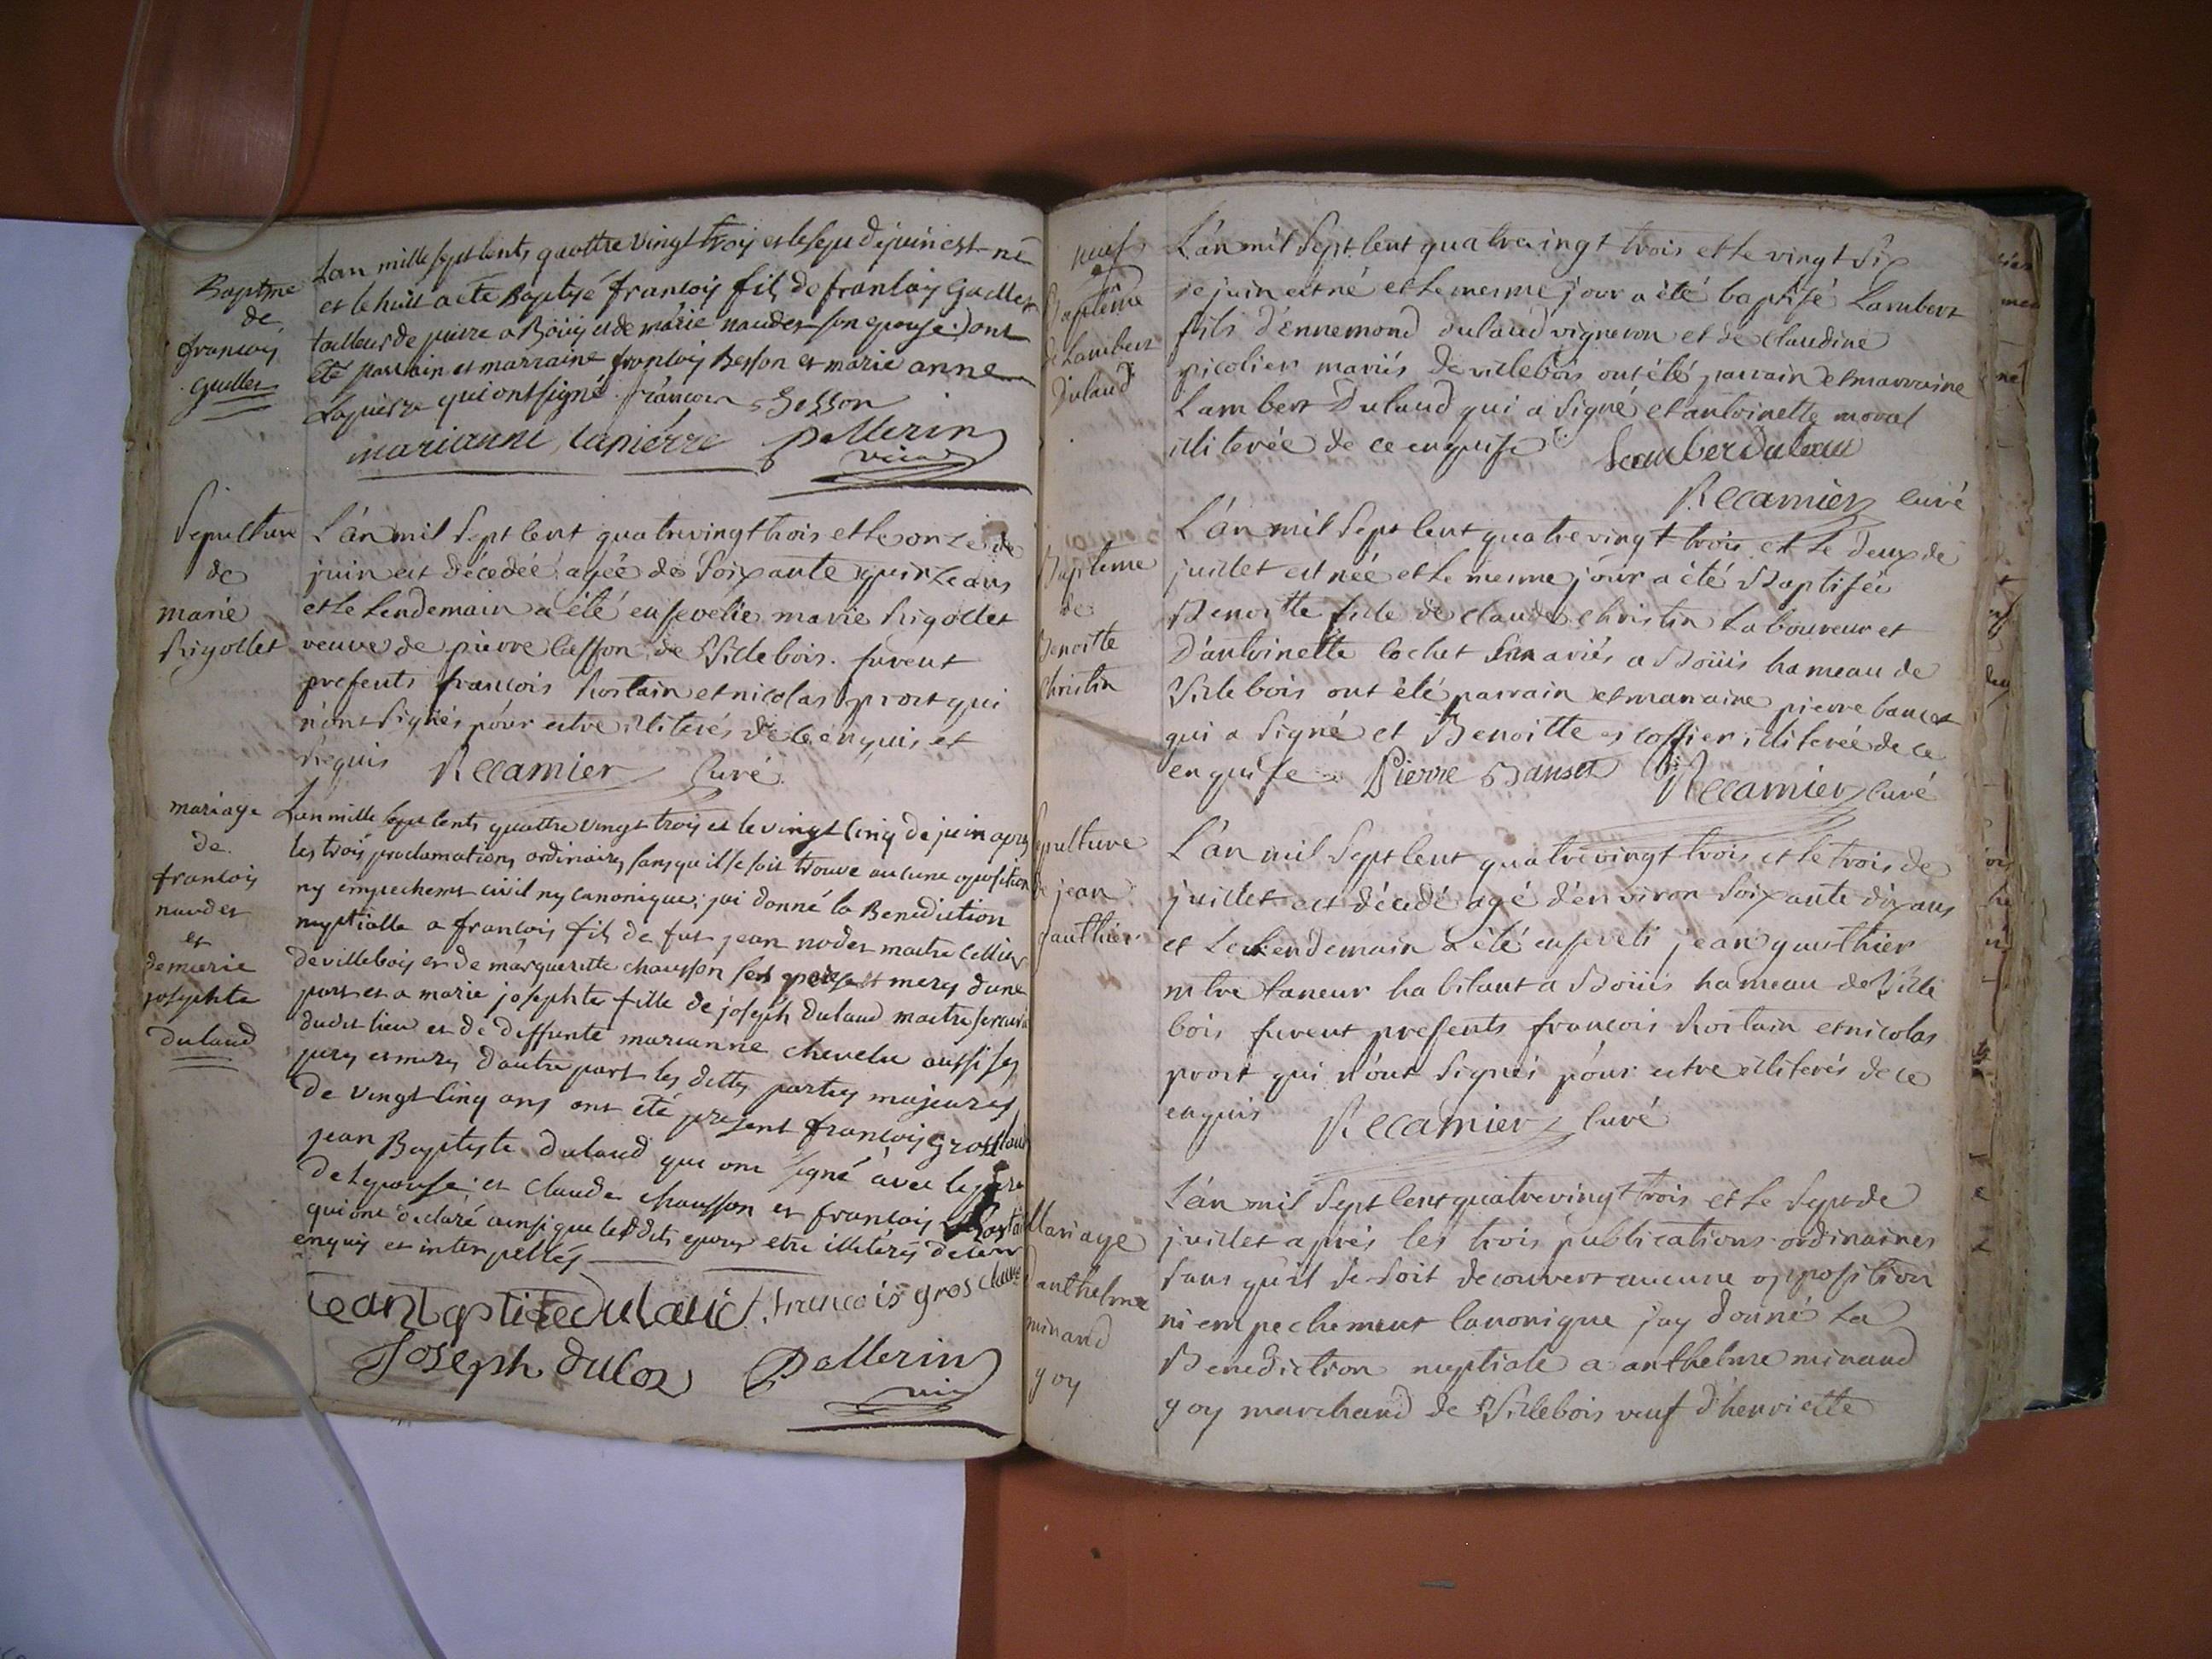 Baptme
de
francois
Guillet
Lan mille sept cents quattre vingt trois et le sept de juin est né
et le huit a ete Baptisé francois fils de francois Guillet
tailleur de pierre a Boüis et de marie naudet son epouse ont
été parrain et marraine francois Besson et marie anne
Lapierre qui ont signé françoes Besson
marianne lapierre Pellerin
vic
Sepulture
de
marie
Rigollet
L'an mil sept cent quatrevingt trois et le onze de
juin est décedée agée de soixante quinze ans
et le lendemain a été ensevelie marie Rigollet
veuve de pierre Besson de Villebois. furent
presents francois Rostain et nicolas prost qui
n'ont signés pour estre illiterés de ce enquis et
requis Récamier Curé
mariage
de
francois
naudet
et
de marie
josephte
dulaud
Lan mille sept cents quattre vingt trois et le vingt cinq de juin apres
les trois proclamations ordinaires sans qu'il se soit trouve aucune oposition
ny empechemt civil ny canonique; jai donné la Benediction
nuptialle a francois fils de fut jean nodet maitre Cellier
de villebois et de margueritte chausson ses pere et mere dune
part et a marie josephte fille de joseph dulaud maitre serrurie
dudit lieu et de deffunte marianne chevelu aussi ses
pere et mere dautre part les dittes parties majeures
de vingt cinq ans ont été present francois gros claude
jean Baptiste dulaud qui ont signé avec le pere
de lepouse; et claude chausson et francois Rostain
qui ont declaré ainsi que lesdits epoux etre illiterés de ce
enquis et interpellés
jeanbaptiteduLaud francois gros claude
Joseph dulos Pellerin
vic
neuf
Baptême
de Lambert
Dulaud
L'an mil sept cent quatrevingt trois et le vingt six
de juin est né et le mesme jour a été baptisé Lambert
fils d'Ennemond dulaud vigneron et de Claudine
picolier mariés de villebois ont été parrain et marraine
Lambert Dulaud qui a signé et antoinette moral
illiterée de ce enquise Lamber Dulau
Récamier Curé
Baptême
de
Benoitte
christin
L'an mil sept cent quatrevingt trois et le deux de
juillet est née et le mesme jour a été Baptisée
Benoitte fille de claude christin Laboureur et
D'antoinette cochet mariés a Boüis hameau de
Villebois ont été parrain et marraine pierre banset
qui a signé et Benoitte escoffier illiterée de ce
enquise Pierre Banset Récamier Curé
Sepulture
de jean
gauthier
L'an mil sept cent quatrevingt trois et le trois de
juillet est décedé agé d'environ soixante dix ans
et le lendemain a été enseveli jean gauthier
mtre taneur habitant a Boüis hameau de Ville
bois furent presents francois Rostain et nicolas
prost qui n'ont signés pour estre illiterés de ce
enquis Récamier Curé
Mariage
d'anthelme
minand
goy
L'an mil sept cent quatrevingt trois et le sept de
juillet aprés les trois publications ordinaires
sans qu'il se soit decouvert aucune opposition
ni empechement canonique j'ay donné la
Benediction nuptiale a anthelme minand
goy marchand de Villebois veuf d'henriette